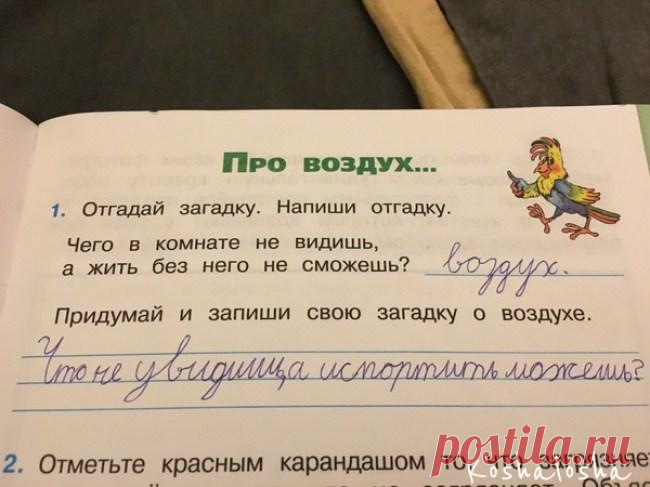 Про воздух...
1. Отгадай загадку. Напиши отгадку.
Чего в комнате не видишь,
а жить без него не сможешь? воздух.
Придумай и запиши свою загадку о воздухе.
Что не увидиш, а испортить можешь?
2. Отметьте красным карандашом то, что загрязняет
postila.ru
Koshatosha